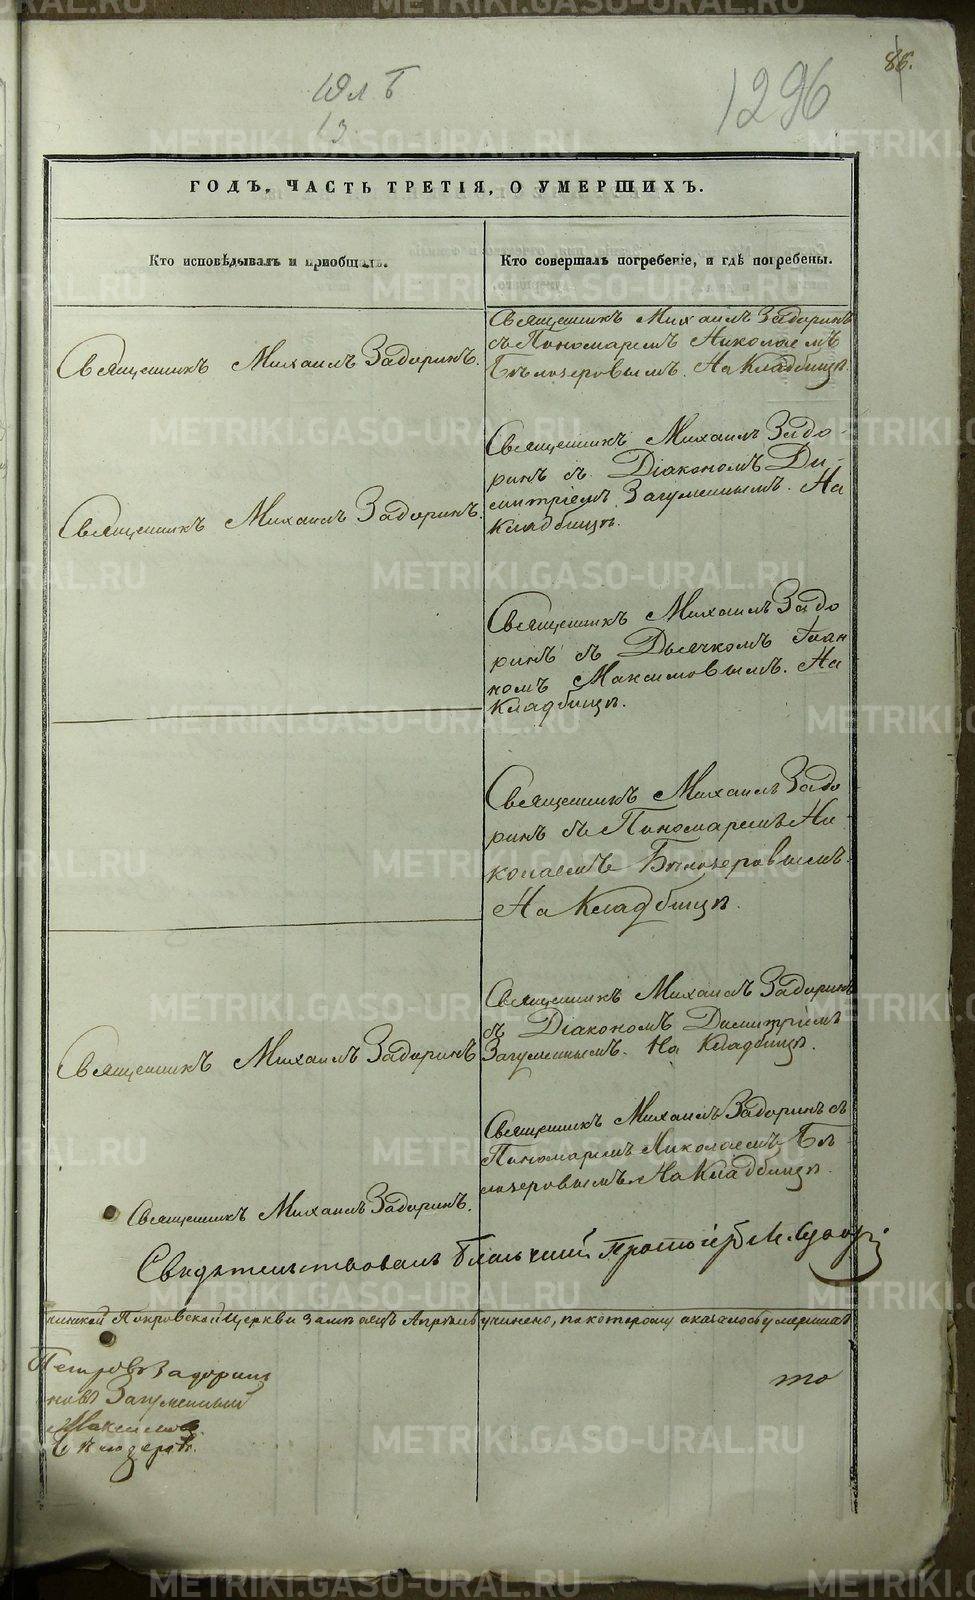 86.
1296
13
ГОДЪ, ЧАСТЬ ТРЕТІЯ, О УМЕРШИХЪ.
Кто исповѣдывалъ и пріобщалъ.
Кто совершалъ погребеніе, и гдѣ погребены.
Священникъ Михаилъ Задоринъ.
Священникъ Михаилъ Задоринъ
съ Пономаремъ Николаемъ
Бѣлозеровымъ. На Кладбищѣ.
Священникъ Михаилъ Задоринъ.
Священникъ Михаилъ Задо-
ринъ съ Діакономъ Ди-
митріемъ Загуменнымъ. На
Кладбищѣ.
Священникъ Михаилъ Задо
ринъ съ Дьячкомъ Іоан
номъ Максимовымъ. На
Кладбищѣ.
Священникъ Михаилъ Задо
ринъ съ Пономаремъ Ни-
колаемъ Бѣлозеровымъ.
На Кладбищѣ.
Священникъ Михаилъ Задоринъ
Священникъ Михаилъ Задоринъ
съ Діакономъ Димитріемъ
Загуменнымъ. На Кладбищѣ.
Священникъ Михаилъ Задоринъ.
Священникъ Михаилъ Задоринъ съ
Пономаремъ Николаемъ Бѣ-
лозеровымъ. На Кладбищѣ.
Свидѣтельствовалъ Благочинный Протоіерей
Покровской Церкви за мѣсяцъ Апрѣль учинено, по которому оказалось умершихъ
то
Петровъ Задоринъ
новъ Загуменный
Максимовъ
Бѣлозеровъ.
METRIKI.GASO-URAL.RU